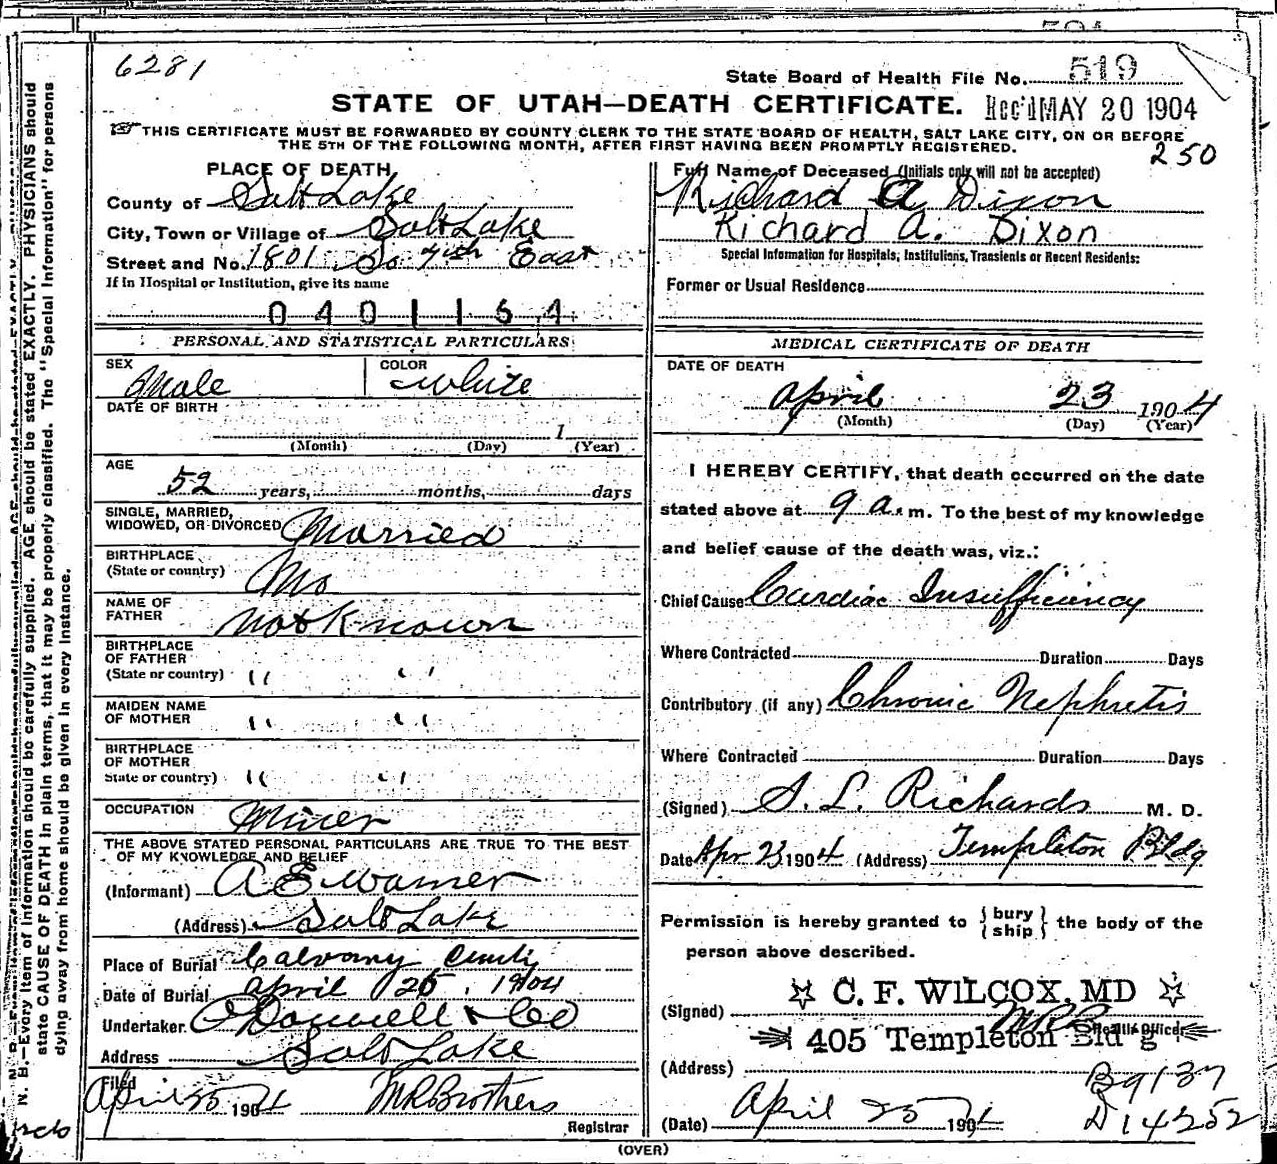 6281
State Board of Health File No. 519
STATE OF UTAH—DEATH CERTIFICATE. Rec'd MAY 20 1904
THIS CERTIFICATE MUST BE FORWARDED BY COUNTY CLERK TO THE STATE BOARD OF HEALTH, SALT LAKE CITY, ON OR BEFORE
THE 5TH OF THE FOLLOWING MONTH, AFTER FIRST HAVING BEEN PROMPTLY REGISTERED.
250
PLACE OF DEATH
County of Salt Lake
City, Town or Village of Salt Lake
Street and No. 1801 So 7th East
If in Hospital or Institution, give its name
0401164
PERSONAL AND STATISTICAL PARTICULARS
SEX Male COLOR White
DATE OF BIRTH
1
(Month) (Day) (Year)
AGE
52 years, months, days
SINGLE, MARRIED,
WIDOWED, OR DIVORCED Married
BIRTHPLACE
(State or country) Mo
NAME OF
FATHER Not Known
BIRTHPLACE
OF FATHER
(State or country) " "
MAIDEN NAME
OF MOTHER " "
BIRTHPLACE
OF MOTHER
State or country) " "
OCCUPATION Miner
THE ABOVE STATED PERSONAL PARTICULARS ARE TRUE TO THE BEST
OF MY KNOWLEDGE AND BELIEF
(Informant) A E Warner
(Address) Salt Lake
Place of Burial Calvary
Date of Burial April 25, 1904
Undertaker O'Donnell & Co
Address Salt Lake
Filed
April 25 1904 M R Brothers
Registrar
Full Name of Deceased (Initials only will not be accepted)
Richard A Dixon
Richard A. Dixon
Special Information for Hospitals, Institutions, Transients or Recent Residents:
Former or Usual Residence
MEDICAL CERTIFICATE OF DEATH
DATE OF DEATH
April 23 1904
(Month) (Day) (Year)
I HEREBY CERTIFY, that death occurred on the date
stated above at 9 a.m. To the best of my knowledge
and belief cause of the death was, viz.:
Chief Cause Cardiac Insufficiency
Where Contracted Duration Days
Contributory (if any) Chronic Nephretis
Where Contracted Duration Days
(Signed) S. L. Richards M. D.
Date Apr 23 1904 (Address) Templeton Bldg
Permission is hereby granted to {bury ship} the body of the
person above described.
(Signed) C. F. WILCOX, MD
Health Officer
405 Templeton Bld'g
(Address)
B9137
(Date) April 25 1904 D14252
(OVER)
N. B.—Every item of information should be carefully supplied. AGE should be stated EXACTLY. PHYSICIANS should
state CAUSE OF DEATH in plain terms, that it may be properly classified. The "Special Information" for persons
dying away from home should be given in every instance.